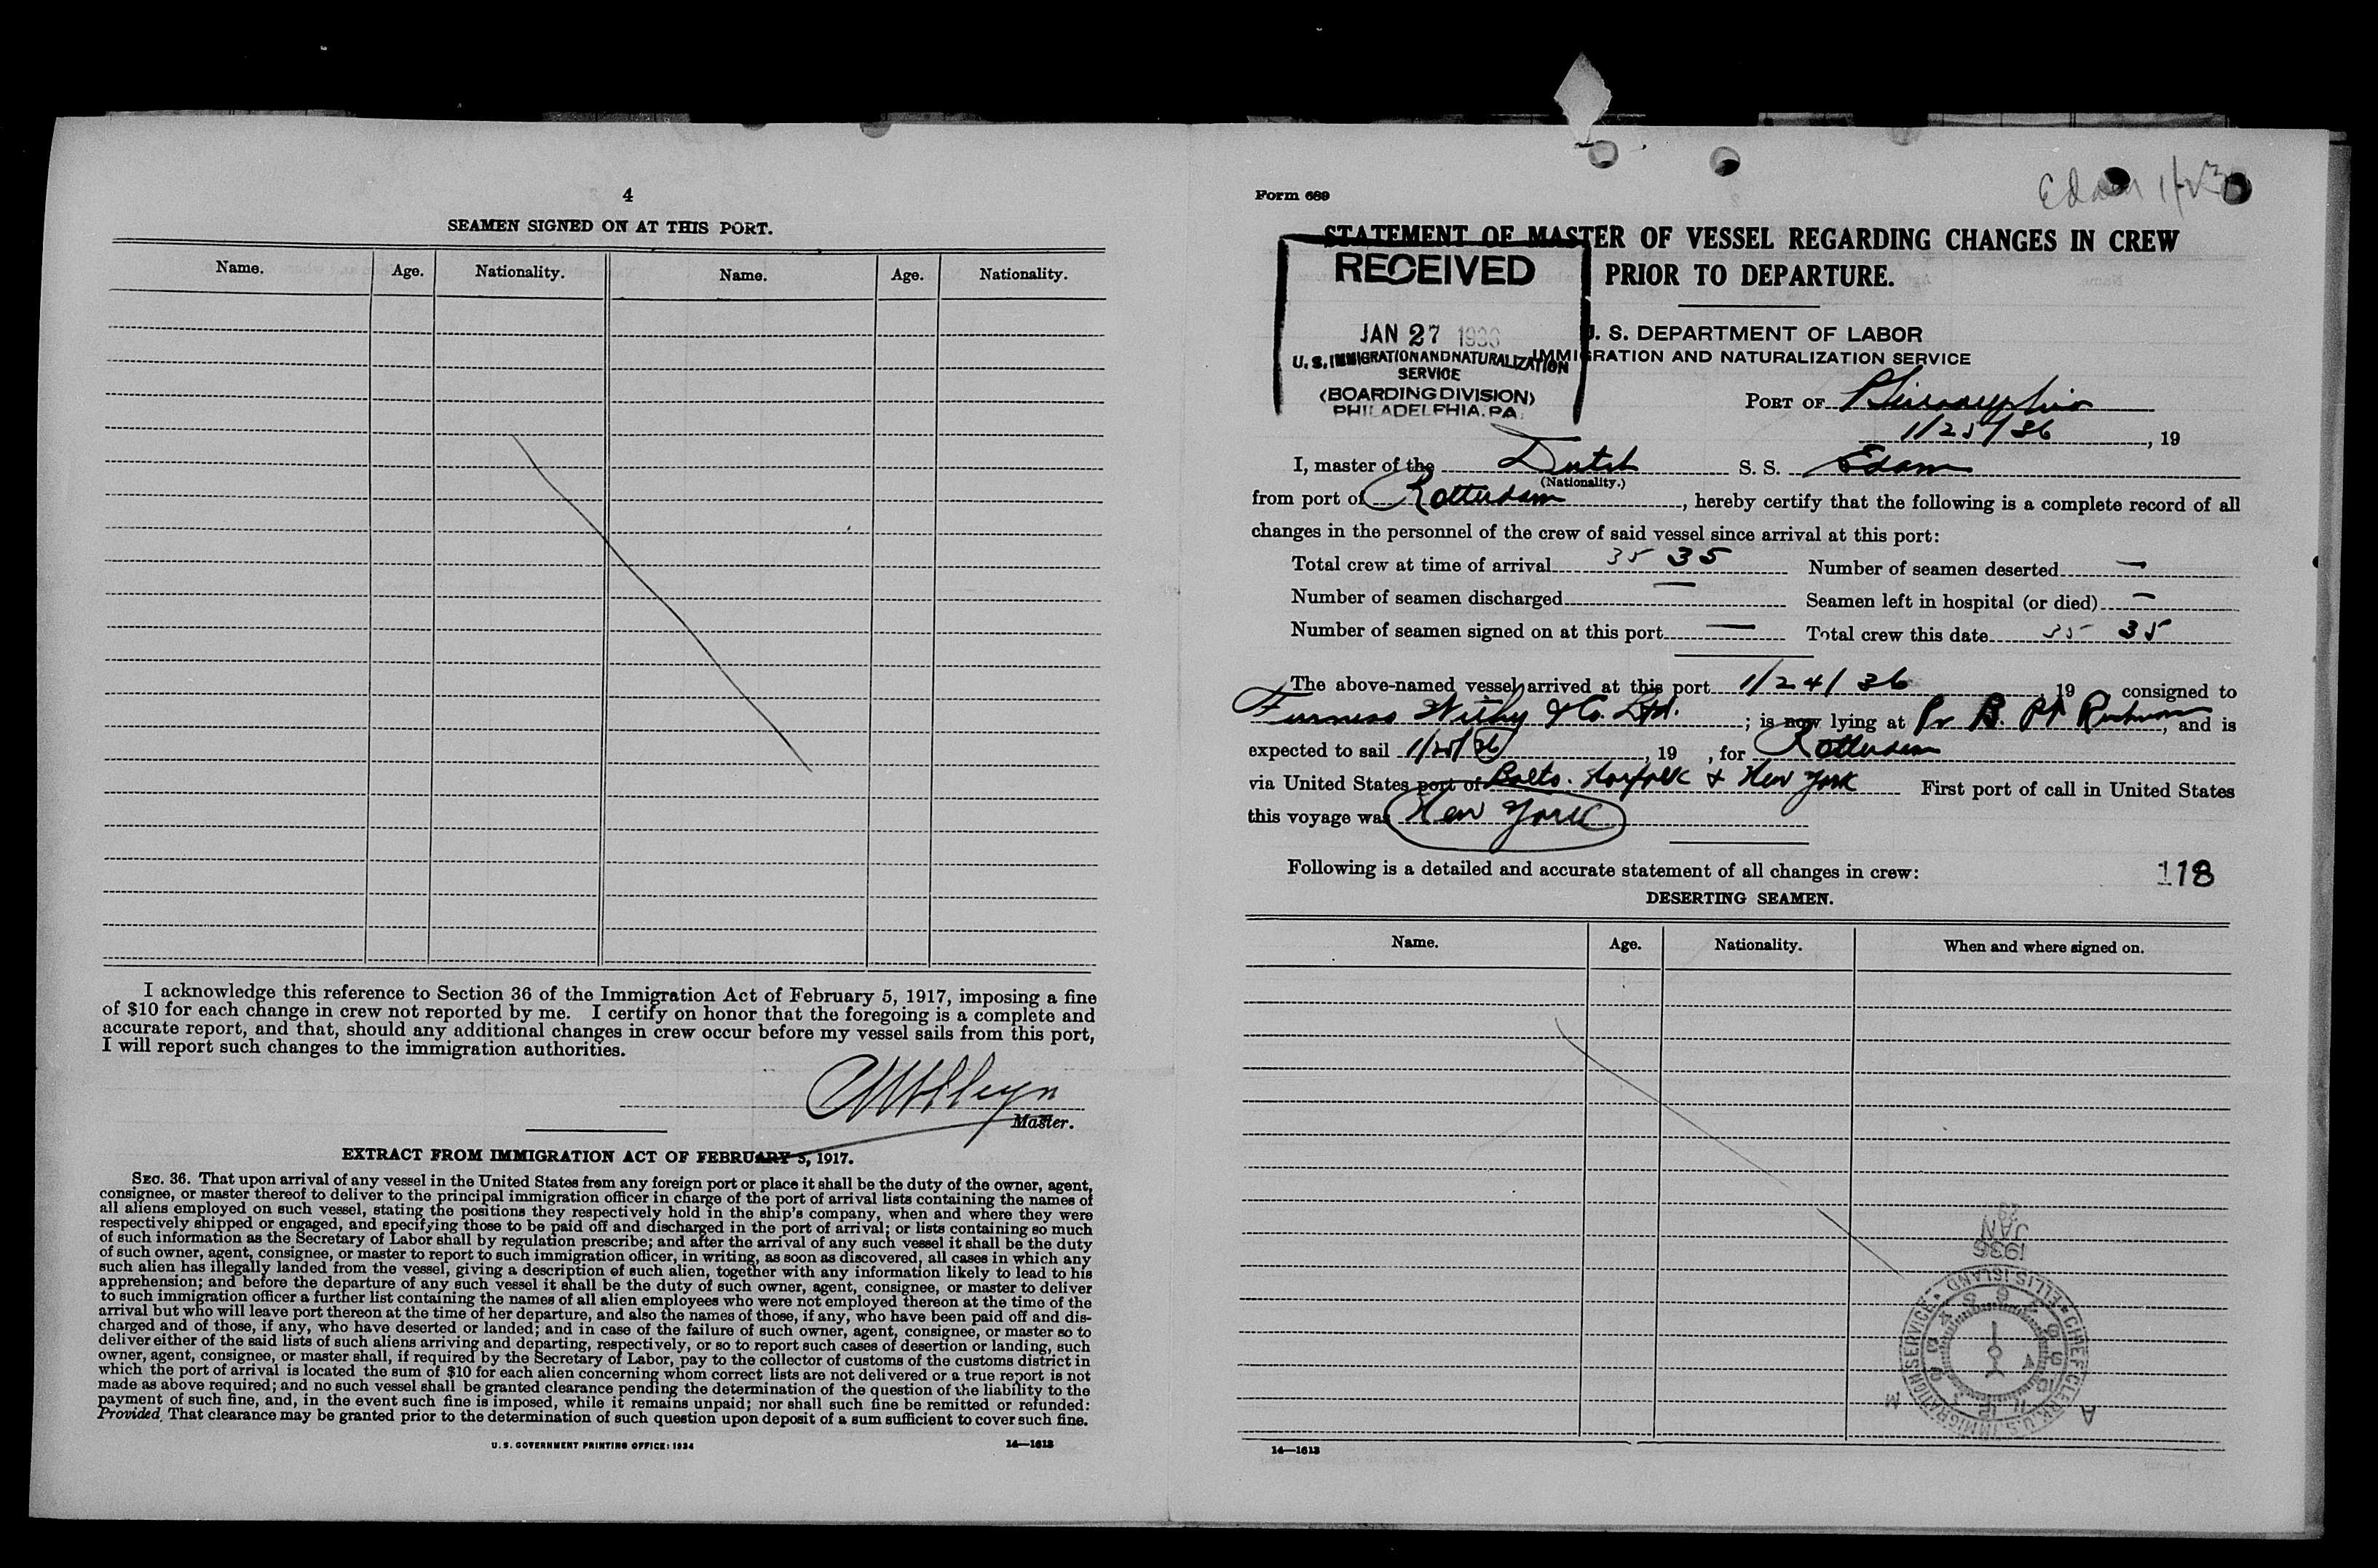 4
SEAMEN SIGNED ON AT THIS PORT.
Name. Age. Nationality. Name. Age. Nationality.
I acknowledge this reference to Section 36 of the Immigration Act of February 5, 1917, imposing a fine
of $10 for each change in crew not reported by me. I certify on honor that the foregoing is a complete and
accurate report, and that, should any additional changes in crew occur before my vessel sails from this port,
I will report such changes to the immigration authorities.
Master.
EXTRACT FROM IMMIGRATION ACT OF FEBRUARY 5, 1917.
SEC. 36. That upon arrival of any vessel in the United States from any foreign port or place it shall be the duty of the owner, agent,
consignee, or master thereof to deliver to the principal immigration officer in charge of the port of arrival lists containing the names of
all aliens employed on such vessel, stating the positions they respectively hold in the ship's company, when and where they were
respectively shipped or engaged, and specifying those to be paid off and discharged in the port of arrival; or lists containing so much
of such information as the Secretary of Labor shall by regulation prescribe; and after the arrival of any such vessel it shall be the duty
of such owner, agent, consignee, or master to report to such immigration officer, in writing, as soon as discovered, all cases in which any
such alien has illegally landed from the vessel, giving a description of such alien, together with any information likely to lead to his
apprehension; and before the departure of any such vessel it shall be the duty of such owner, agent, consignee, or master to deliver
to such immigration officer a further list containing the names of all alien employees who were not employed thereon at the time of the
arrival but who will leave port thereon at the time of her departure, and also the names of those, if any, who have been paid off and dis-
charged and of those, if any, who have deserted or landed; and in case of the failure of such owner, agent, consignee, or master so to
deliver either of the said lists of such aliens arriving and departing, respectively, or so to report such cases of desertion or landing, such
owner, agent, consignee, or master shall, if required by the Secretary of Labor, pay to the collector of customs of the customs district in
which the port of arrival is located the sum of $10 for each alien concerning whom correct lists are not delivered or a true report is not
made as above required; and no such vessel shall be granted clearance pending the determination of the question of the liability to the
payment of such fine, and, in the event such fine is imposed, while it remains unpaid; nor shall such fine be remitted or refunded:
Provided, That clearance may be granted prior to the determination of such question upon deposit of a sum sufficient to cover such fine.
U. S. GOVERNMENT PRINTING OFFICE: 1934 14—1613
Form 689
Edam
STATEMENT OF MASTER OF VESSEL REGARDING CHANGES IN CREW
PRIOR TO DEPARTURE.
RECEIVED
JAN 27 1936
U. S. IMMIGRATION AND NATURALIZATION
SERVICE
(BOARDING DIVISION)
PHILADELPHIA, PA.
U. S. DEPARTMENT OF LABOR
IMMIGRATION AND NATURALIZATION SERVICE
PORT OF Philadelphia
1/25/36, 19
I, master of the Dutch S. S. Edam
(Nationality.)
from port of Rotterdam, hereby certify that the following is a complete record of all
changes in the personnel of the crew of said vessel since arrival at this port:
Total crew at time of arrival 35 35 Number of seamen deserted —
Number of seamen discharged — Seamen left in hospital (or died) —
Number of seamen signed on at this port — Total crew this date 35 35
The above-named vessel arrived at this port 1/24/36, 19 consigned to
Furness Withy & Co. Ltd.; is now lying at Pr B. Pt Richmond, and is
expected to sail 1/25/36, 19 , for Rotterdam
via United States port of Balto. Norfolk & New York First port of call in United States
this voyage was New York
Following is a detailed and accurate statement of all changes in crew:
118
DESERTING SEAMEN.
Name. Age. Nationality. When and where signed on.
1936
JAN
CHIEF CLERK, U.S. IMMIGRATION SERVICE • ELLIS ISLAND
A M
14—1613